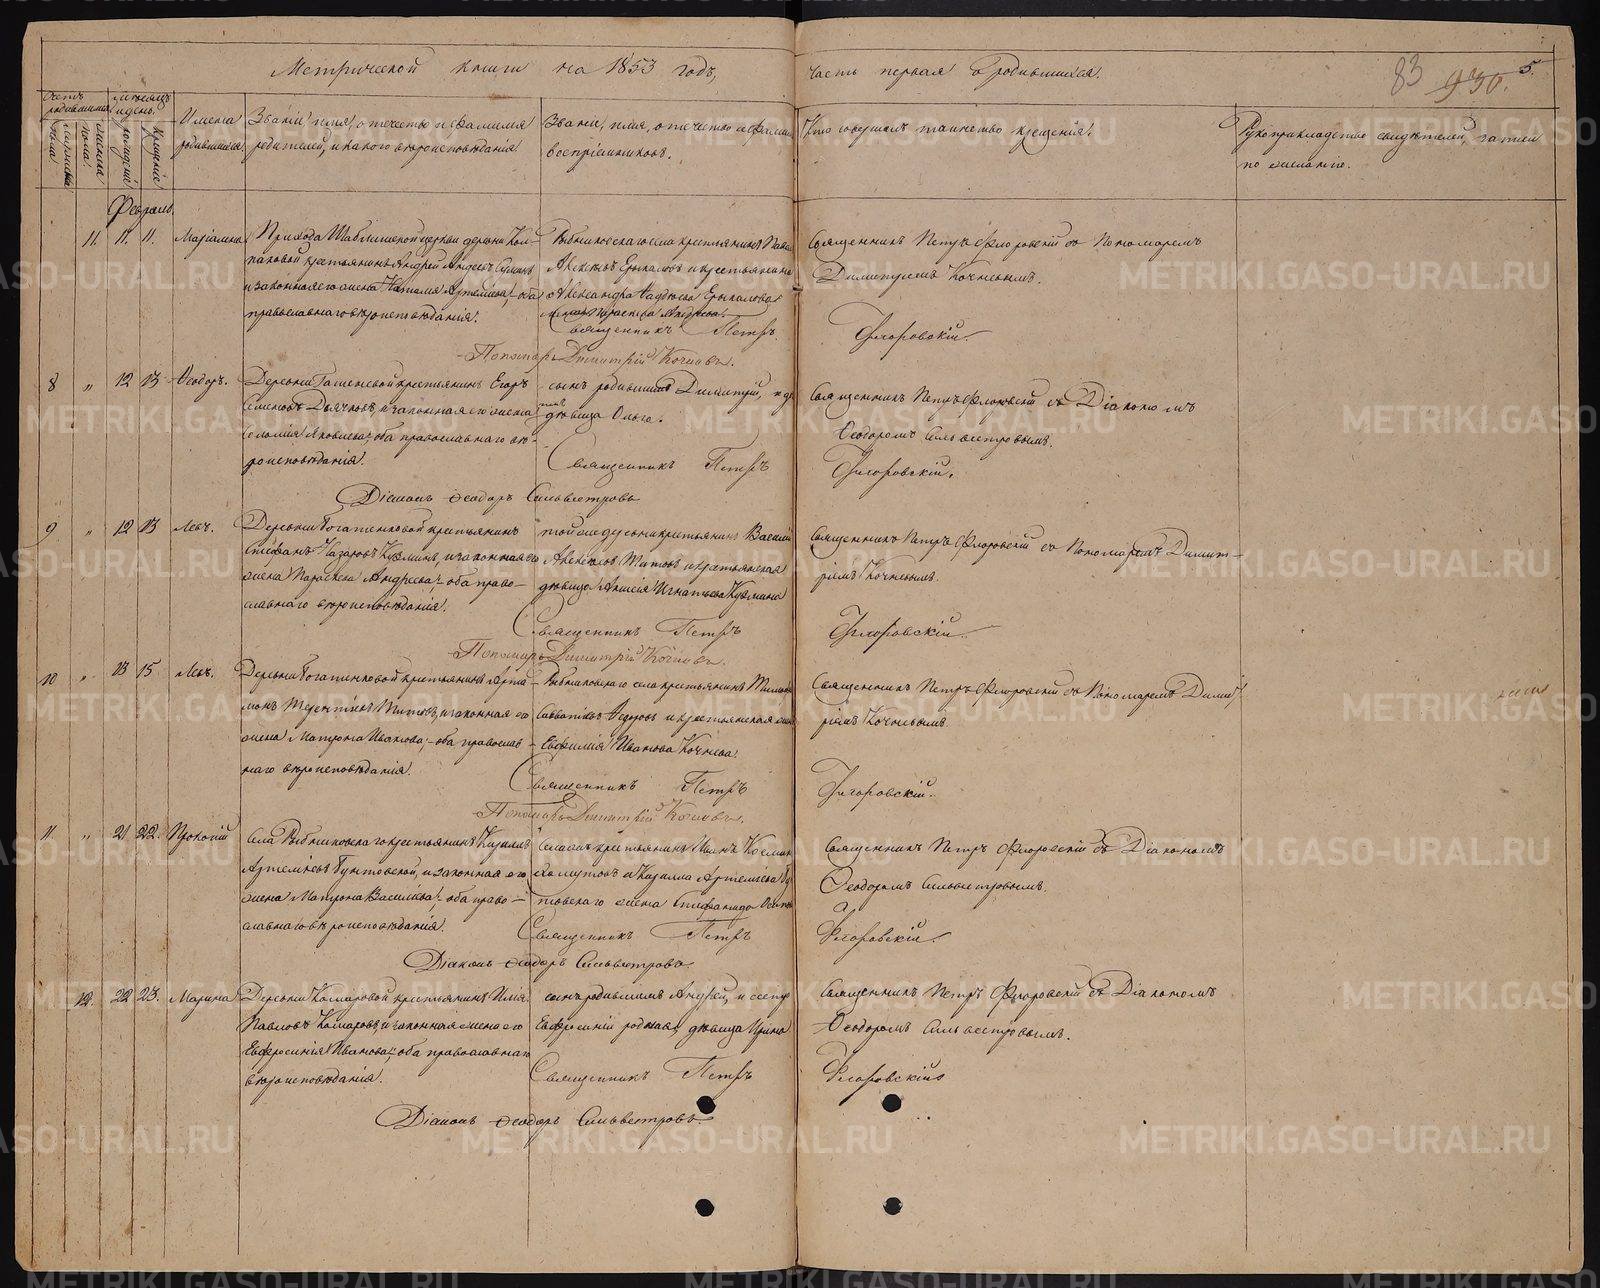 Метрической книги на 1853 годъ,
часть первая о родившихся.
83 930. 5.
Счетъ родившихся
мужеска пола
женска пола
Мѣсяцъ и день
рожденія
крещенія
Имена
родившихся
Званіе, имя, отчество и фамилія
родителей, и какого вѣроисповѣданія
Званіе, имя, отчество и фамилія
воспріемниковъ.
Кто совершалъ таинство крещенія.
Рукоприкладство свидѣтелей записи
по желанію.
Февраль.
11. 11. 11. Маріамна
Прихода церкви деревни
крестьянинъ Андрей
и законная его жена Артемьева, оба
православнаго вѣроисповѣданія.
Рыбниковскаго села крестьянинъ
Ерыкаловъ и крестьянская
Александра Ерыкалова
Священникъ Петръ
Пономарь Димитрій Кочневъ.
Священникъ Петръ Флоровскій съ Пономаремъ
Димитріемъ Кочневымъ.
Флоровскій.
8 „ 12 13 Ѳеодоръ.
Деревни крестьянинъ Егоръ
Семеновъ Дьячковъ, и законная его жена
Яковлева, оба православнаго вѣ-
роисповѣданія.
сынъ родившихъ Димитрій, и
дѣвица Ольга.
Священникъ Петръ
Діаконъ Ѳеодоръ Сильвестровъ
Священникъ Петръ Флоровскій съ Діакономъ
Ѳеодоромъ Сильвестровымъ.
Флоровскій.
9 „ 12 13 Левъ.
Деревни Богатенковой крестьянинъ
Стефанъ Назаровъ Кузминъ, и законная его
жена Параскева Андреева, оба право-
славнаго вѣроисповѣданія.
той же деревни крестьянинъ Василій
Алексѣевъ Титовъ и крестьянская
дѣвица Анисія Игнатьева Кузмина
Священникъ Петръ
Пономарь Димитрій Кочневъ.
Священникъ Петръ Флоровскій съ Пономаремъ Димит-
ріемъ Кочневымъ.
Флоровскій.
10 „ 13 15 Левъ.
Деревни Богатенковой крестьянинъ Арта-
монъ Терентіевъ Титовъ, и законная его
жена Матрона Иванова, оба православ-
наго вѣроисповѣданія.
Рыбниковскаго села крестьянинъ
Савватіевъ Ѳедоровъ и крестьянская жена
Евфимія Иванова Кочнева.
Священникъ Петръ
Пономарь Димитрій Кочневъ.
Священникъ Петръ Флоровскій съ Пономаремъ Димит-
ріемъ Кочневымъ.
Флоровскій.
11. „ 21 22. Прокопій
Села Рыбниковскаго крестьянинъ Кириллъ
Артеміевъ Бунтовской, и законная его
жена Матрона Васильева, оба право-
славнаго вѣроисповѣданія.
крестьянинъ Иванъ
Хомутовъ и Кирилла Артемьева
жена Стефанида
Священникъ Петръ
Діаконъ Ѳеодоръ Сильвестровъ.
Священникъ Петръ Флоровскій съ Діакономъ
Ѳеодоромъ Сильвестровымъ.
Флоровскій.
12. 22 23. Марина
Деревни Комаровой крестьянинъ Илія
Павловъ Комаровъ, и законная жена его
Евфросинія Иванова, оба православнаго
вѣроисповѣданія.
сынъ родившихъ Андрей, и сестра
Евфросиніи родная, дѣвица Ирина
Священникъ Петръ
Діаконъ Ѳеодоръ Сильвестровъ.
Священникъ Петръ Флоровскій съ Діакономъ
Ѳеодоромъ Сильвестровымъ.
Флоровскій
METRIKI.GASO-URAL.RU